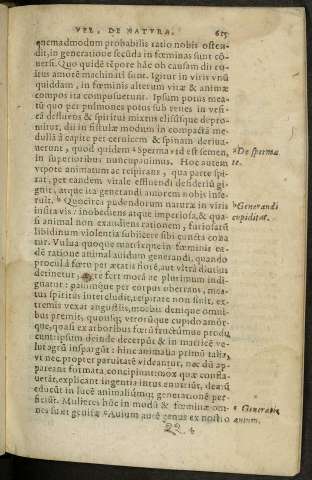 VEL, DE NATVRA. 615
quemadmodum probabilis ratio nobis osten-
dit, in generatione secũda in fœminas sunt cõ-
uersi. Quo quidẽ tẽpore hãc ob causam dij co-
itus amorẽ machinati sunt. Igitur in viris vnũ
quiddam, in fœminis alterum vitæ & animæ
compos ita composuerunt. Ipsum potus mea-
tũ quo per pulmones potus sub renes in vesi-
cã defluens & spiritus mixtus elisusque depro-
mitur, ita in fistulæ modum in compactã me-
dullã à capite per ceruicem & spinam deriua-
uerunt, quod quidem ᵃ sperma, id est semen,
in superioribus nuncupauimus. Hoc autem
vtpote animatum ac respirans, qua parte spi-
rat, per eandem vitale effluendi desideriũ gi-
gnit, atque ita generandi amorem nobis inse-
ruit. ᵇ Quocirca pudendorum natura in viris
instar vis inobediens atque imperiosa, & qua-
si animal non exaudiens rationem, furiosarũ
libidinum violentia subijcere sibi cuncta cona-
tur. Vulua quoque matrixque in fœminis ea-
dẽ ratione animal auidum generandi, quando
procul à fœtu per ætatis florẽ, aut vltrà diutius
detinetur, ægrè fert morã ac plurimum indi-
gnatur: passimque per corpus oberrans, mea-
tus spiritus intercludit, respirare non sinit, ex-
tremis vexat angustijs, morbis denique omni-
bus premit, quousque vtrorũque cupido amór-
que, quasi ex arboribus fœtũ fructũmue produ-
cunt: ipsum deinde decerpũt & in matricẽ ve-
lut agrũ inspargũt: hinc animalia primũ talia,
vt nec propter paruitatẽ videantur, nec dũ ap-
pareant formata, concipiunt: mox quæ confla-
uerãt, explicant ingentia intus enutriũt, deĩũ
educũt in lucẽ animaliũmque generationẽ per-
ficiũt. Mulieres hũc in modũ & fœminæ om-
nes sunt genitæ ᶜ Auium autẽ genus ex nostro
ᵃ De sperma
te.
ᵇ Generandi
cupiditas.
ᶜ Generatio
auium.